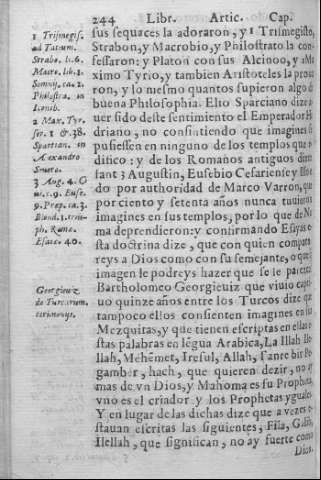 244 Libr. Artic. Cap.
sus sequaces la adoraron, y 1 Trismegisto,
Strabon, y Macrobio, y Philostrato la con
fessaron: y Platon con sus Alcinoo, y
ximo Tyrio, y tambien Aristoteles la
ron, y lo nesmo quantos supieron algo d
buena Philosophia. Elio Sparciano dize
uer sido deste sentimiento el Emperador H
driano, no consintiendo que imagines
pusiessen en ninguno de los templos que
dificò: y de los Romanos antiguos
sant 3 Augustin, Eusebio Cesariense y
do por authoridad de Marco Varron, que
por ciento y setenta años nunca tuuieron
imagines en sus templos, por lo que de
ma deprendieron: y confirmando Esayas
sta doctrina dize, que con quien compa
reys a Dios como con su semejante, o que
imagen le podreys hazer que se le
Bartholomeo Georgieuiz que viuio
uo quinze años entre los Turcos dize que
tampoco ellos consienten imagines en
Mezquitas, y que tienen escriptas en ellas
stas palabras en lẽgua Arabica, La Illah
llah, Mehèmet, Iresul, Allah, tanre bir
gamber, hach, que quieren dezir, no
mas de vn Dios, y Mahoma es su Propheta,
vno es el criador y los Prophetas yguales.
Y en lugar de las dichas dize que a vezes
stauan escritas las siguientes, Fila, Galib,
Ilellah, que significan, no ay fuerte como
Dios.
1 Trismegis.
ad Tatium.
Strabo, li. 6.
Macro, lib. 1.
Somnij, ca. 2.
Philostra. in
Iamb.
2 Max. Tyr.
ser. 1 & 38.
Spartian. in
Alexandro
Seuero.
3 Aug. 4. C
9. Euse.
9. Prep. ca. 3.
Blond. 1.
ph. Roma.
Esaiæ. 40.
Georgieuiz
de Turcarum